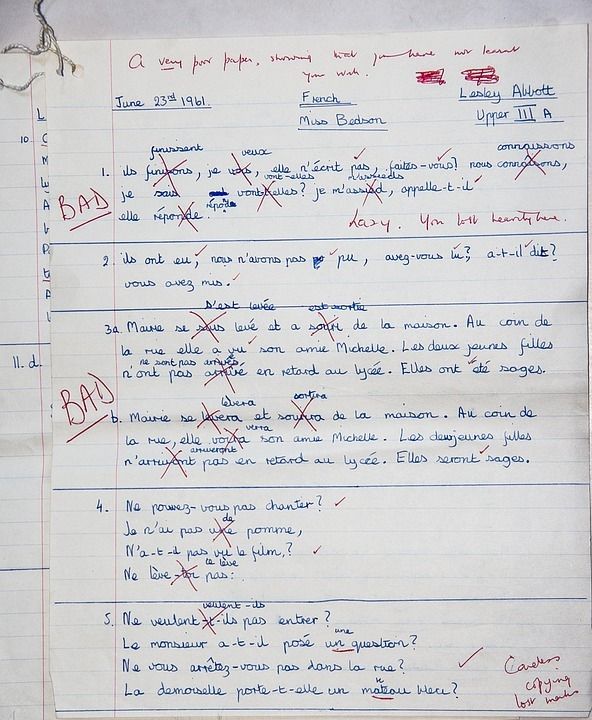 A very poor paper, showing that you have not learnt
your work.
June 23rd 1961. French Lesley Abbott
Miss Bedson Upper III A
finissent veux connaissons
1. ils finisons, je vous, elle n'écrit pas, faites-vous? nous connaisons,
vont-elles m'assieds
je sais vont-elles? je m'assied, appelle-t-il
BAD
elle réponde. répond
Lazy. You lost heavily here.
2. ils ont eu, nous n'avons pas pu, avez-vous lu? a-t-il dit?
vous avez mis.
s'est levée est sortie
3a. Marie se sous levé et a souri de la maison. Au coin de
la rue elle a vu son amie Michelle. Les deux jeunes filles
ne sont pas arrivés
n'ont pas arrivé en retard au lycée. Elles ont été sages.
BAD
lèvera sortira
b. Marie se levera et sourira de la maison. Au coin de
verra
la rue, elle voira son amie Michelle. Les deux jeunes filles
arriveront
n'arriyont pas en retard au lycée. Elles seront sages.
4. Ne pouvez-vous pas chanter?
de
Je n'ai pas une pomme,
N'a-t-il pas vu le film,?
te lève
Ne lève-toi pas:
veulent-ils
5. Ne veulent-t-ils pas entrer?
une
Le monsieur a-t-il posé un question?
Ne vous arrêtez-vous pas dans la rue?
La demoiselle porte-t-elle un mateau bleu?
Careless
copying
lost marks
L
10. C
M
A
P
A
11. d.